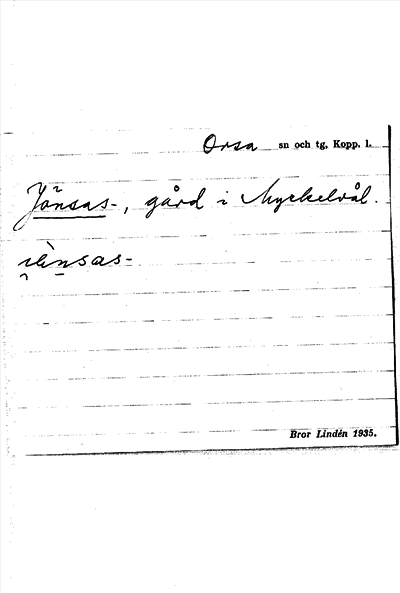 Orsa sn och tg, Kopp. l.
Jönsas-, gård i Myckelvål.
Bror Lindén 1935.